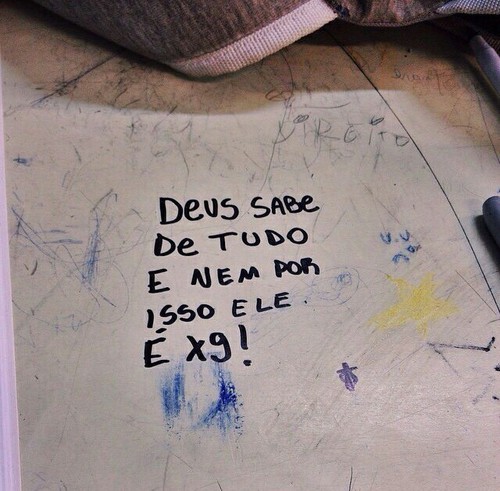 DIREITO
DEUS SABE
DE TUDO
E NEM POR
ISSO ELE
É X9!